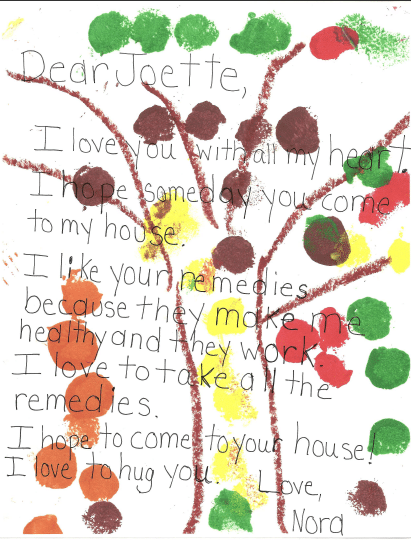 Dear Joette,
I love you with all my heart.
I hope someday you come
to my house.
I like your remedies
because they make me
healthy and they work.
I love to take all the
remedies.
I hope to come to your house!
I love to hug you. Love,
Nora